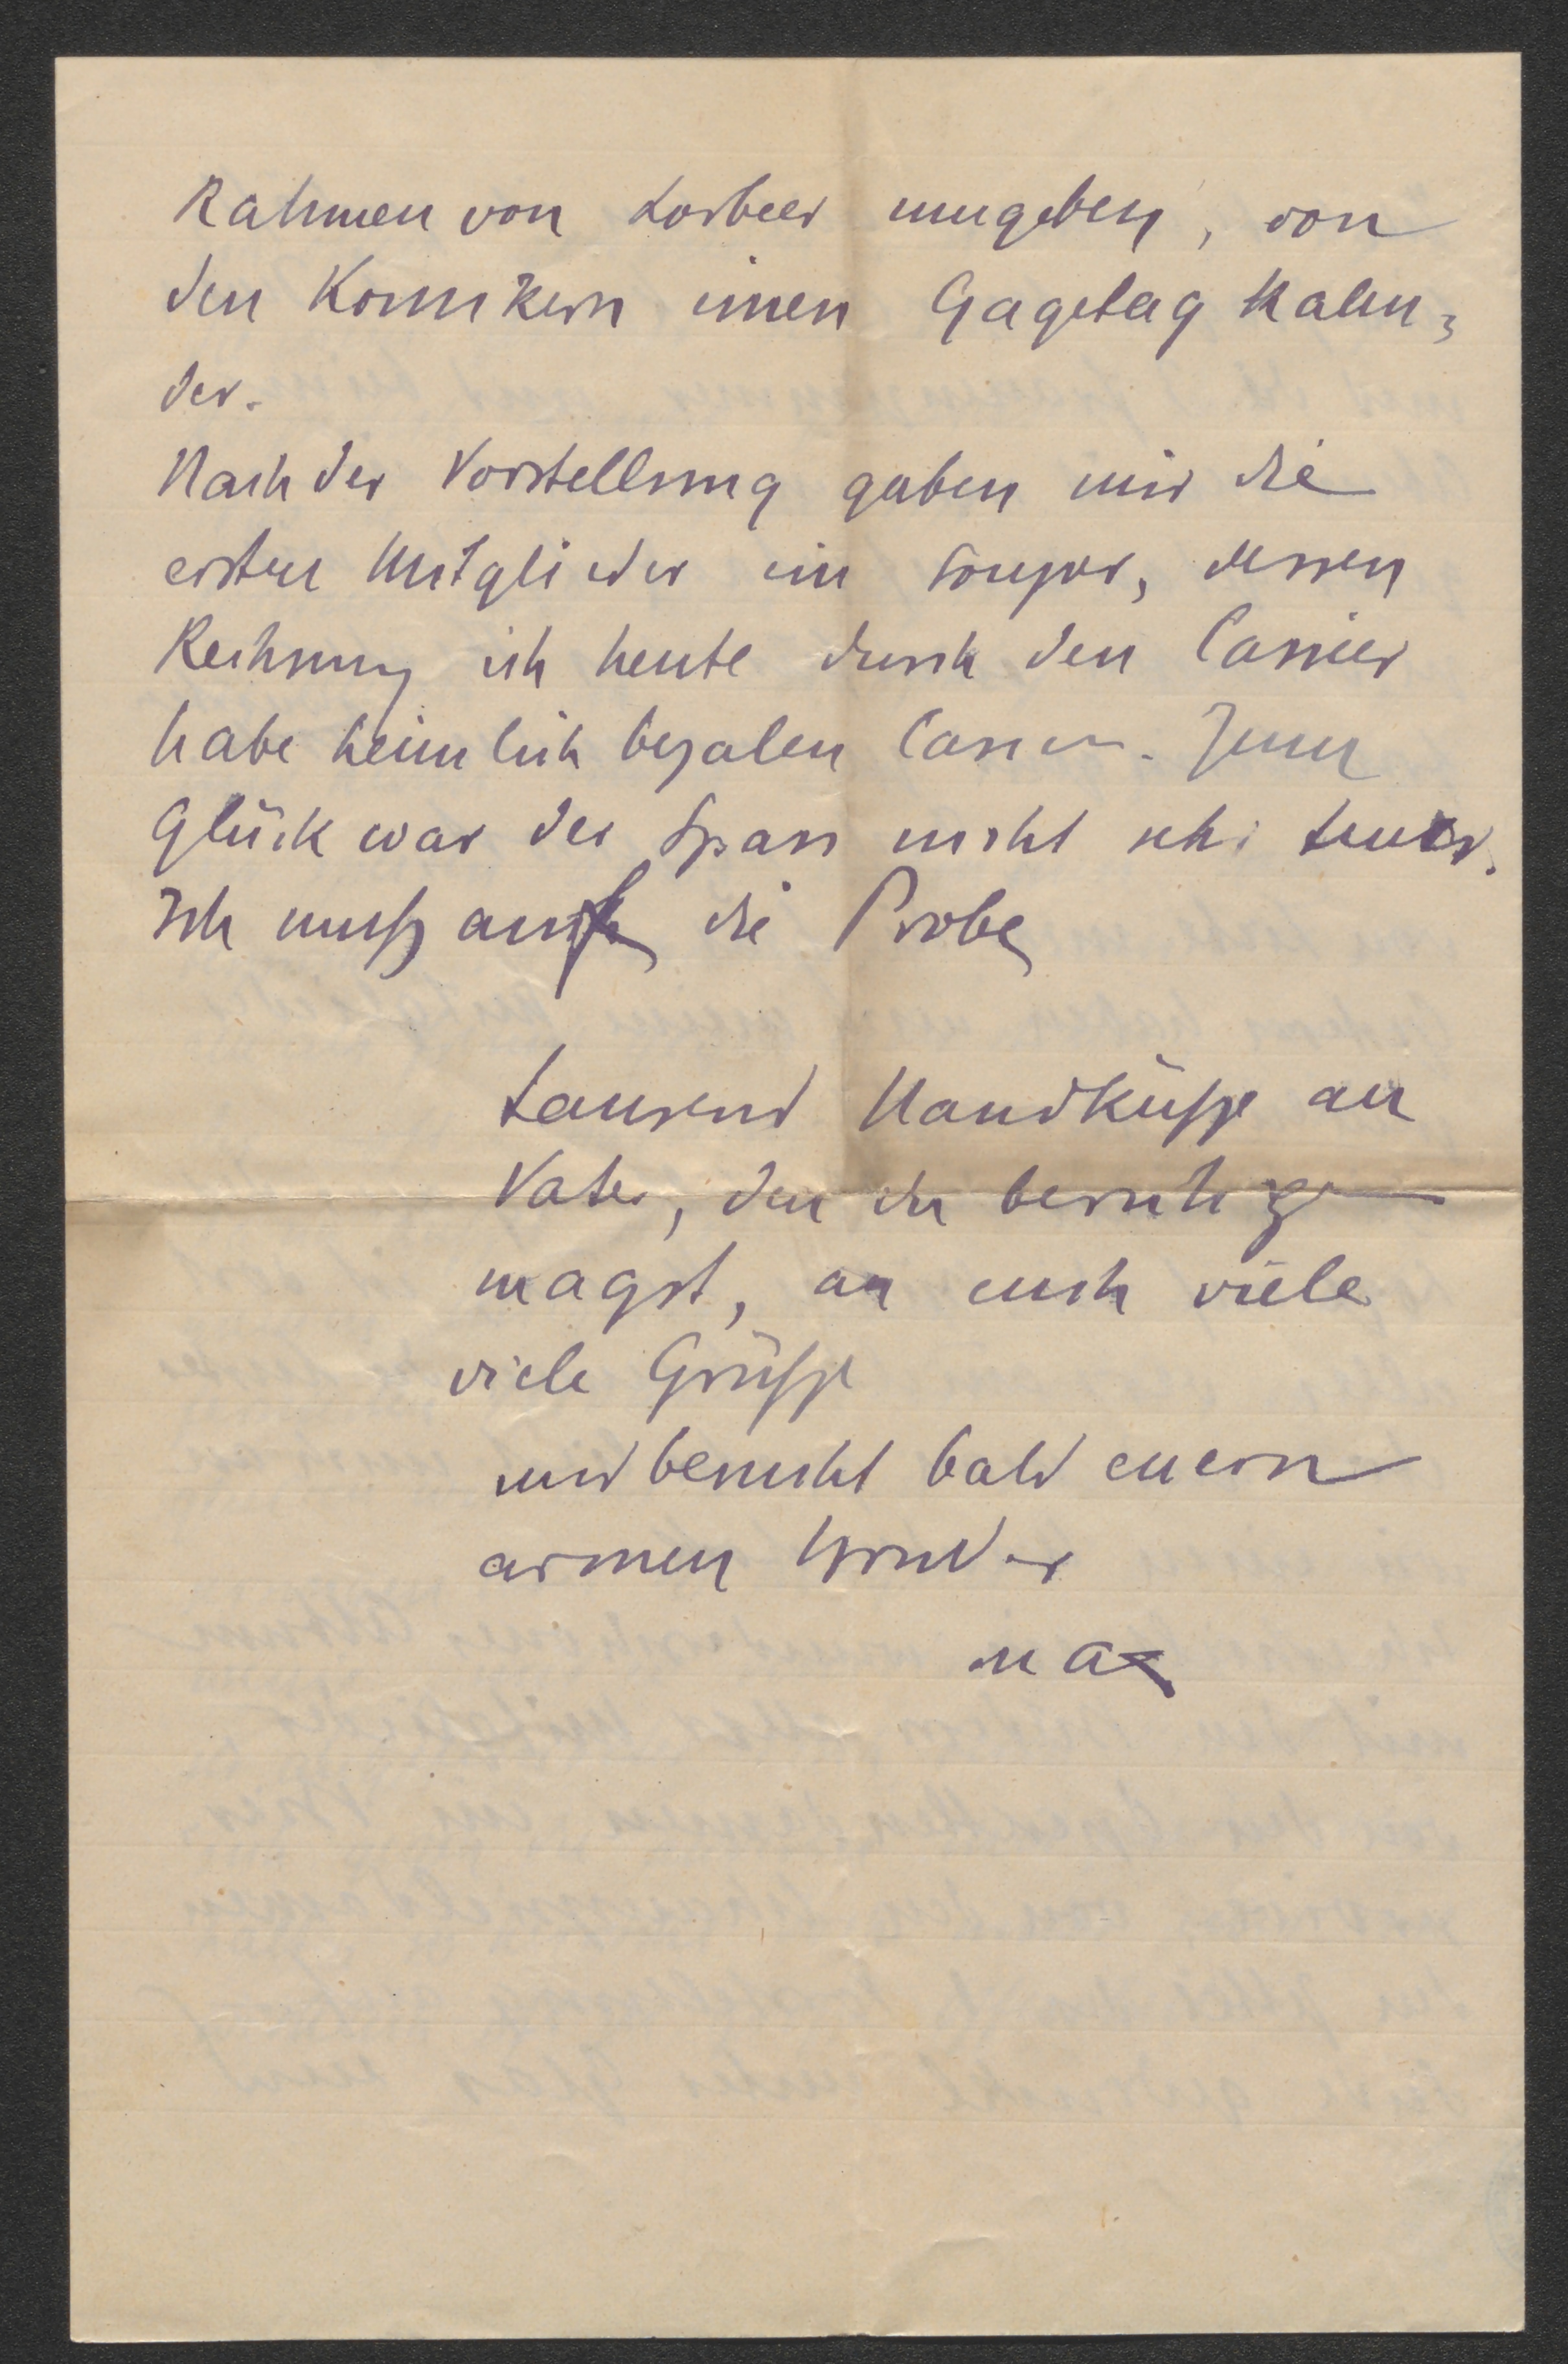 Rahmen von Lorbeer umgeben, von
den Komikern einen Gagetag Kalen=
der.
Nach der Vorstellung gaben mir die
ersten Mitglieder ein Souper, dessen
Rechnung ich heute durch den Cassier
habe heimlich bezalen lassen. Zum
Glück war der Spass nicht sehr teuer.
Ich muß auf die Probe
tausend Handküsse an
Vater, den du beruhigen
magst, an euch viele
viele Grüsse
und besucht bald euern
armen Bruder
Max